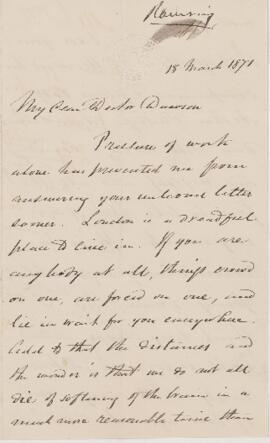 18 March 1871
My dear Doctor Dawson
Pressure of work
alone has prevented me from
answering your welcome letter
sooner. London is a dreadful
place to live in. If you are
anybody at all, things crowd
on one, are forced on one, and
lie in wait for you everywhere.
Add to that the distances and
the wonder is that we do not all
die of softening of the brain in a
much more reasonable time than